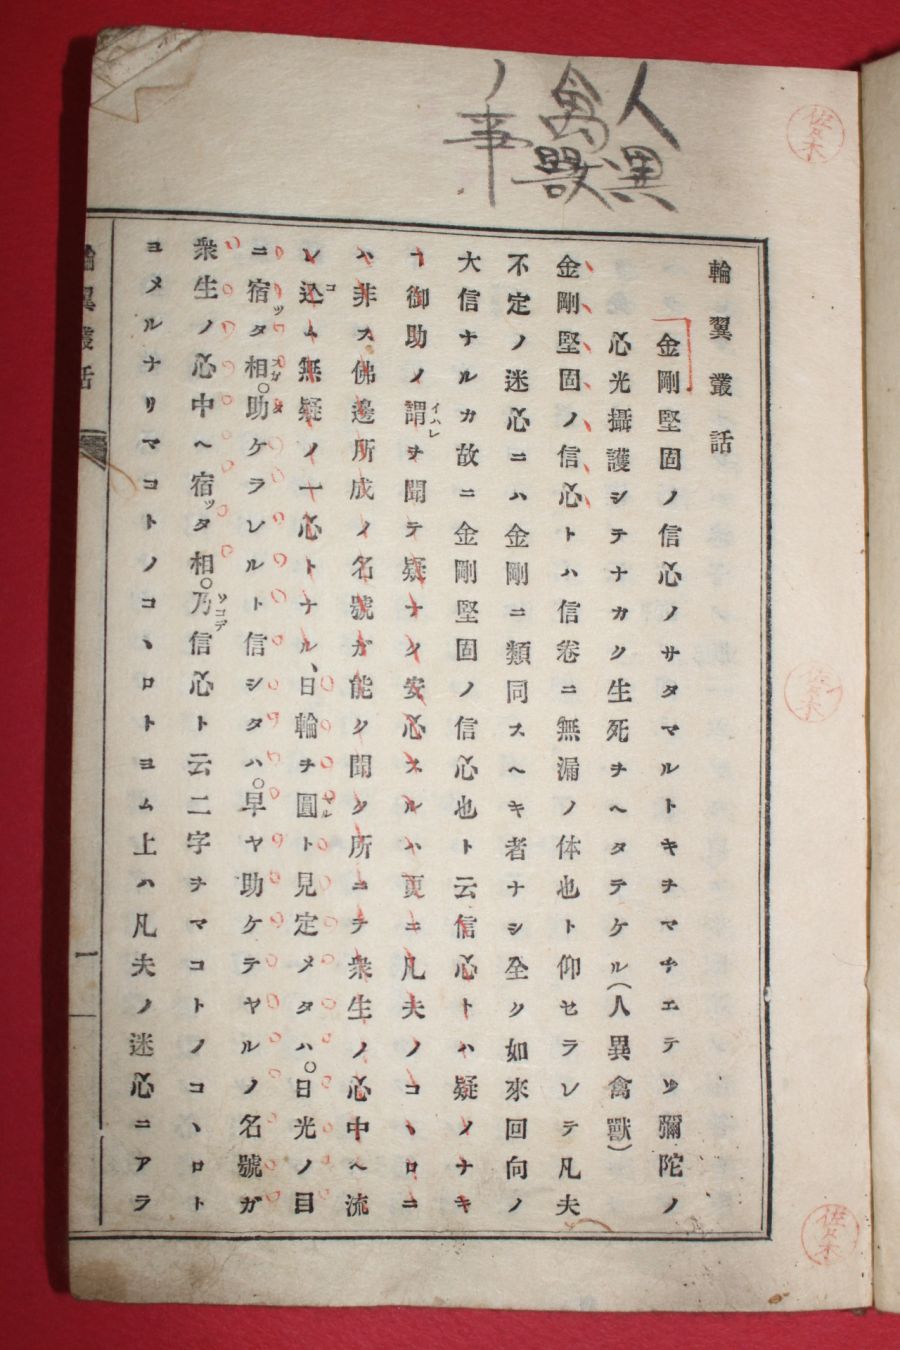 人異
禽獸
ノ事
佐々木
佐々木
佐々木
輪翼叢話
金剛堅固ノ信心ノサタマルトキヲマチエテソ彌陀ノ
心光攝護シテナカク生死ヲヘタテケル(人異禽獸)
金剛堅固ノ信心トハ信卷ニ無漏ノ体也ト仰セラレテ凡夫
不定ノ迷心ニハ金剛ニ類同スヘキ者ナシ全ク如來回向ノ
大信ナルカ故ニ金剛堅固ノ信心也ト云信心トハ疑ノナキ
ヿ御助ノ謂イハレヲ聞テ疑ナク安心スルハ更ニ凡夫ノコヽロニ
ハ非ス佛邊所成ノ名號ガ能ク聞ク所ニテ衆生ノ心中ヘ流
レ込コム無疑ノ一心トナル、日輪ヲ圓マルト見定メタハ。日光ノ目
ニ宿ッタ相スガタ。助ケラレルト信シタハ。早ヤ助ケテヤルノ名號ガ
衆生ノ心中ヘ宿ッタ相。乃ソコデ信心ト云二字ヲマコトノコヽロト
ヨメルナリマコトノコヽロトヨム上ハ凡夫ノ迷心ニアラ
輪翼叢話
一